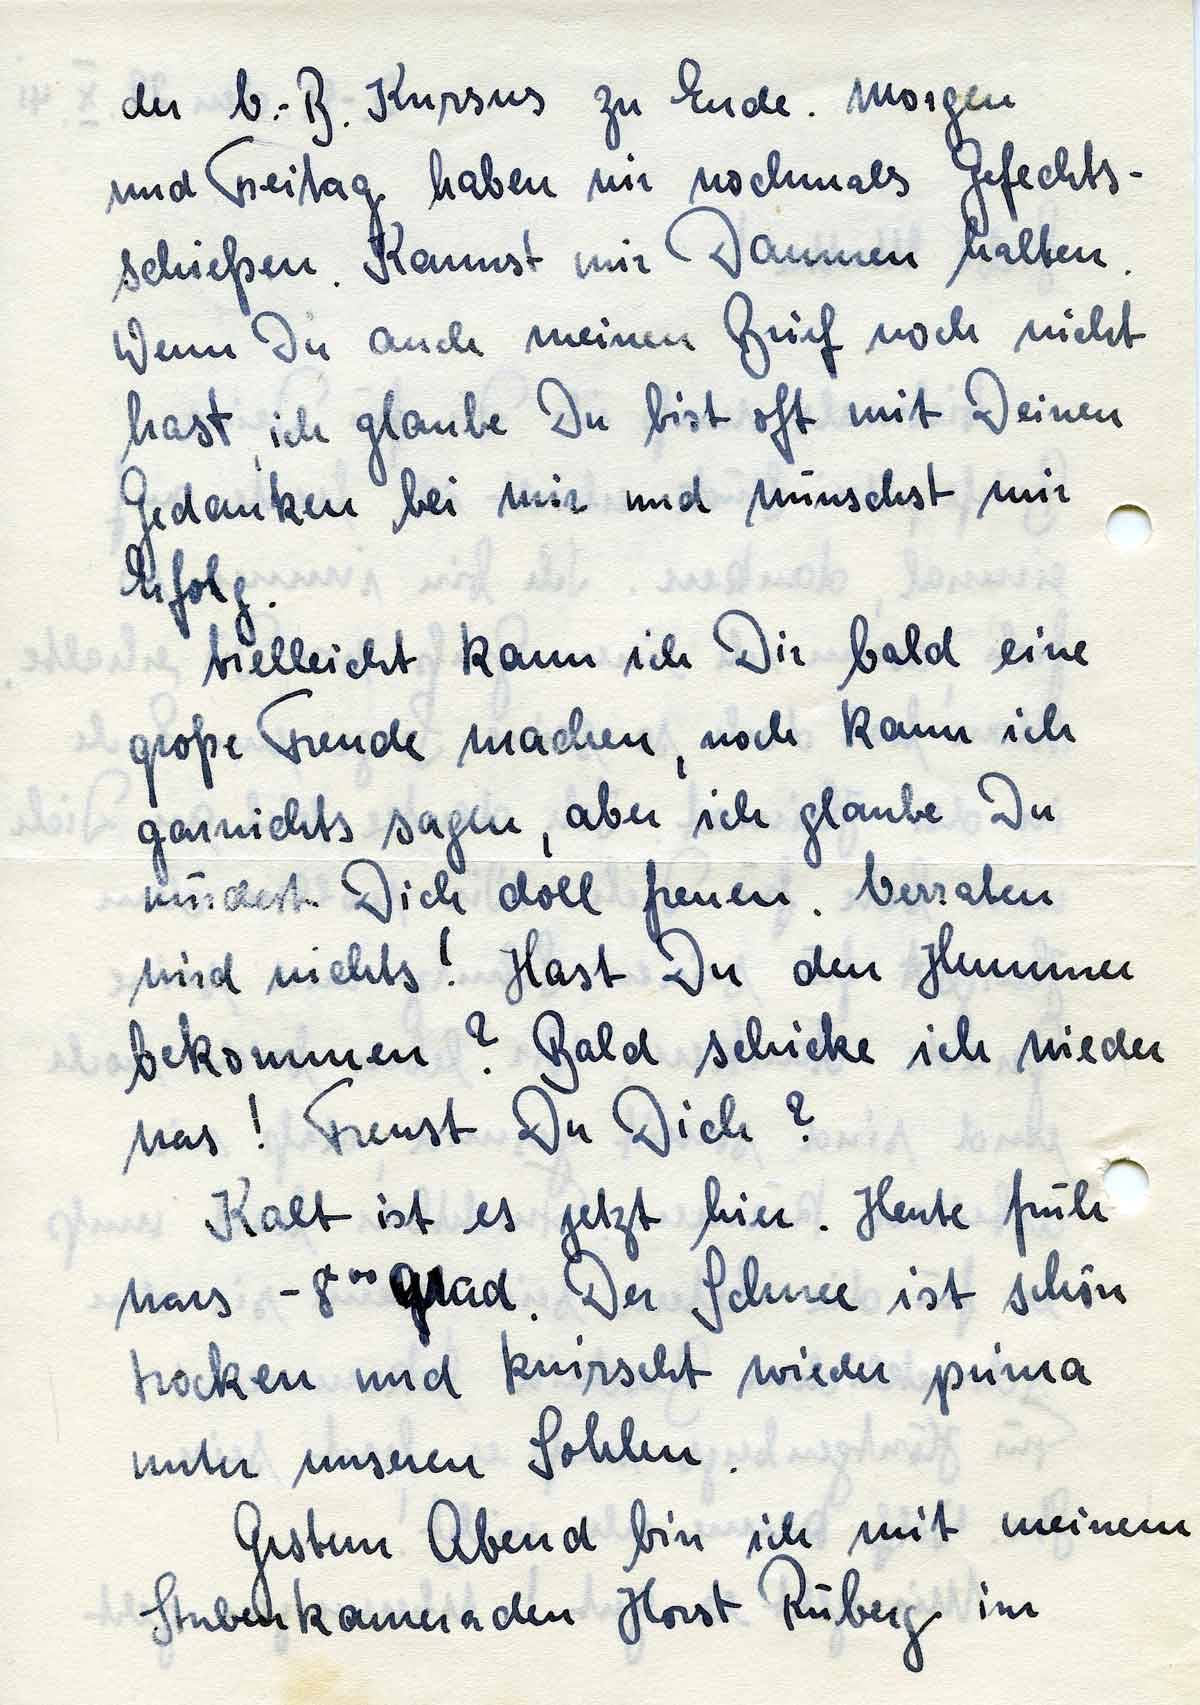 der V.-B. Kursus zu Ende. Morgen
und Freitag haben wir nochmals Gefechts-
schießen. Kannst mir Daumen halten.
Wenn Du auch meinen Brief noch nicht
hast, ich glaube Du bist oft mit Deinen
Gedanken bei mir und wünschst mir
Erfolg.
Vielleicht kann ich Dir bald eine
große Freude machen, noch kann ich
garnichts sagen, aber ich glaube Du
würdest Dich doll freuen. Verraten
wird nichts! Hast Du den Hummer
bekommen? Bald schicke ich wieder
was! Freust Du Dich?
Kalt ist es jetzt hier. Heute früh
wars -8°° Grad. Der Schnee ist schön
trocken und knirscht wieder prima
unter unseren Sohlen.
Gestern Abend bin ich mit meinem
Stubenkameraden Horst Rüberg im